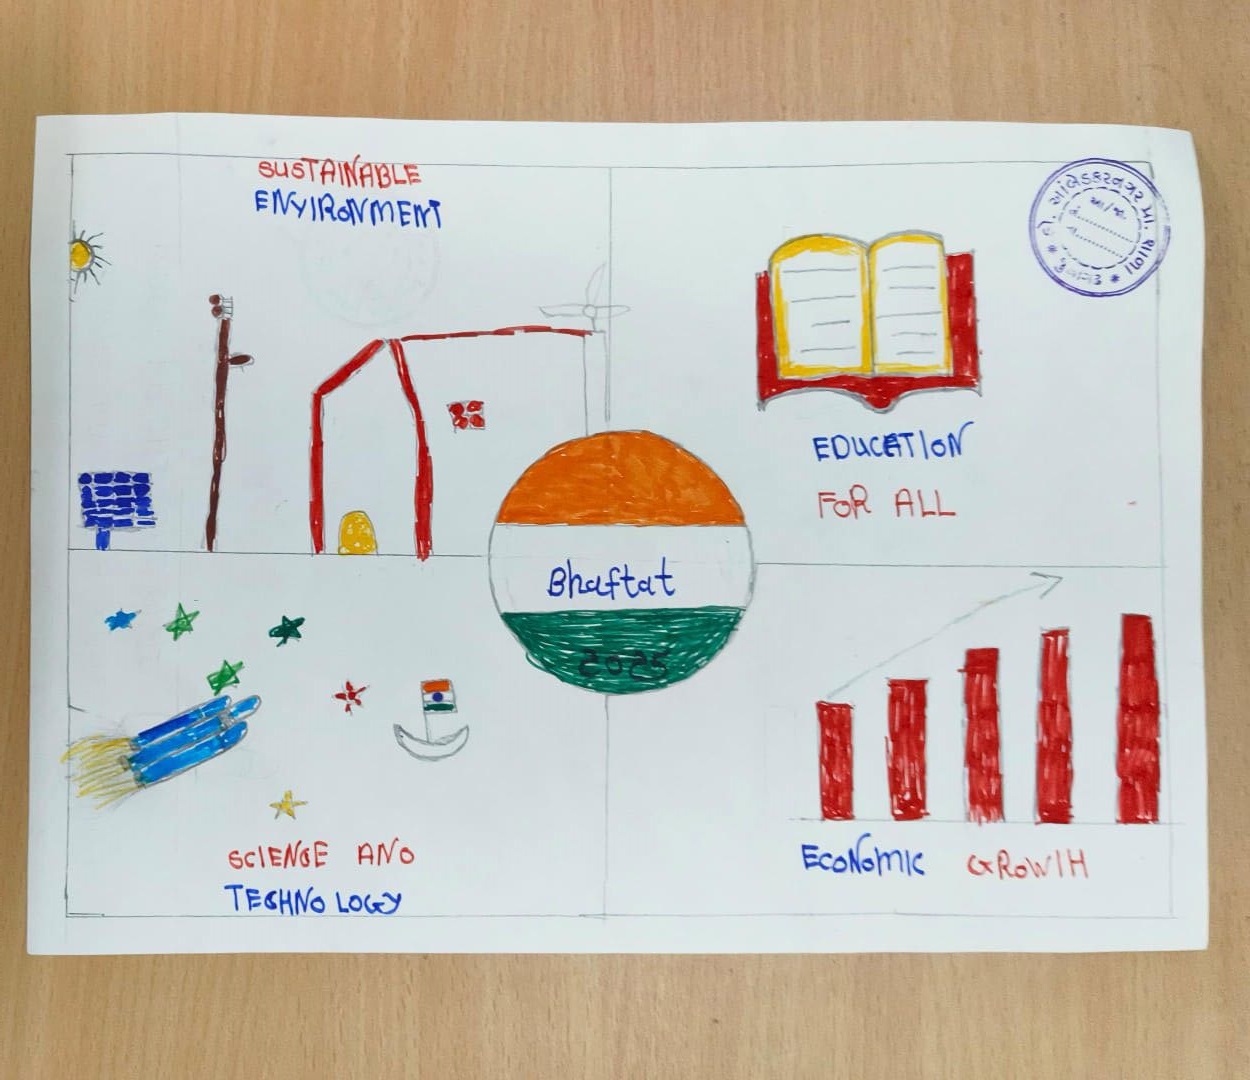 SUSTAINABLE
ENYIRONMENT
EDUCATION
FOR ALL
Bhaftat
2025
SCIENCE AND
TECHNOLOGY
ECONOMIC GROWIH